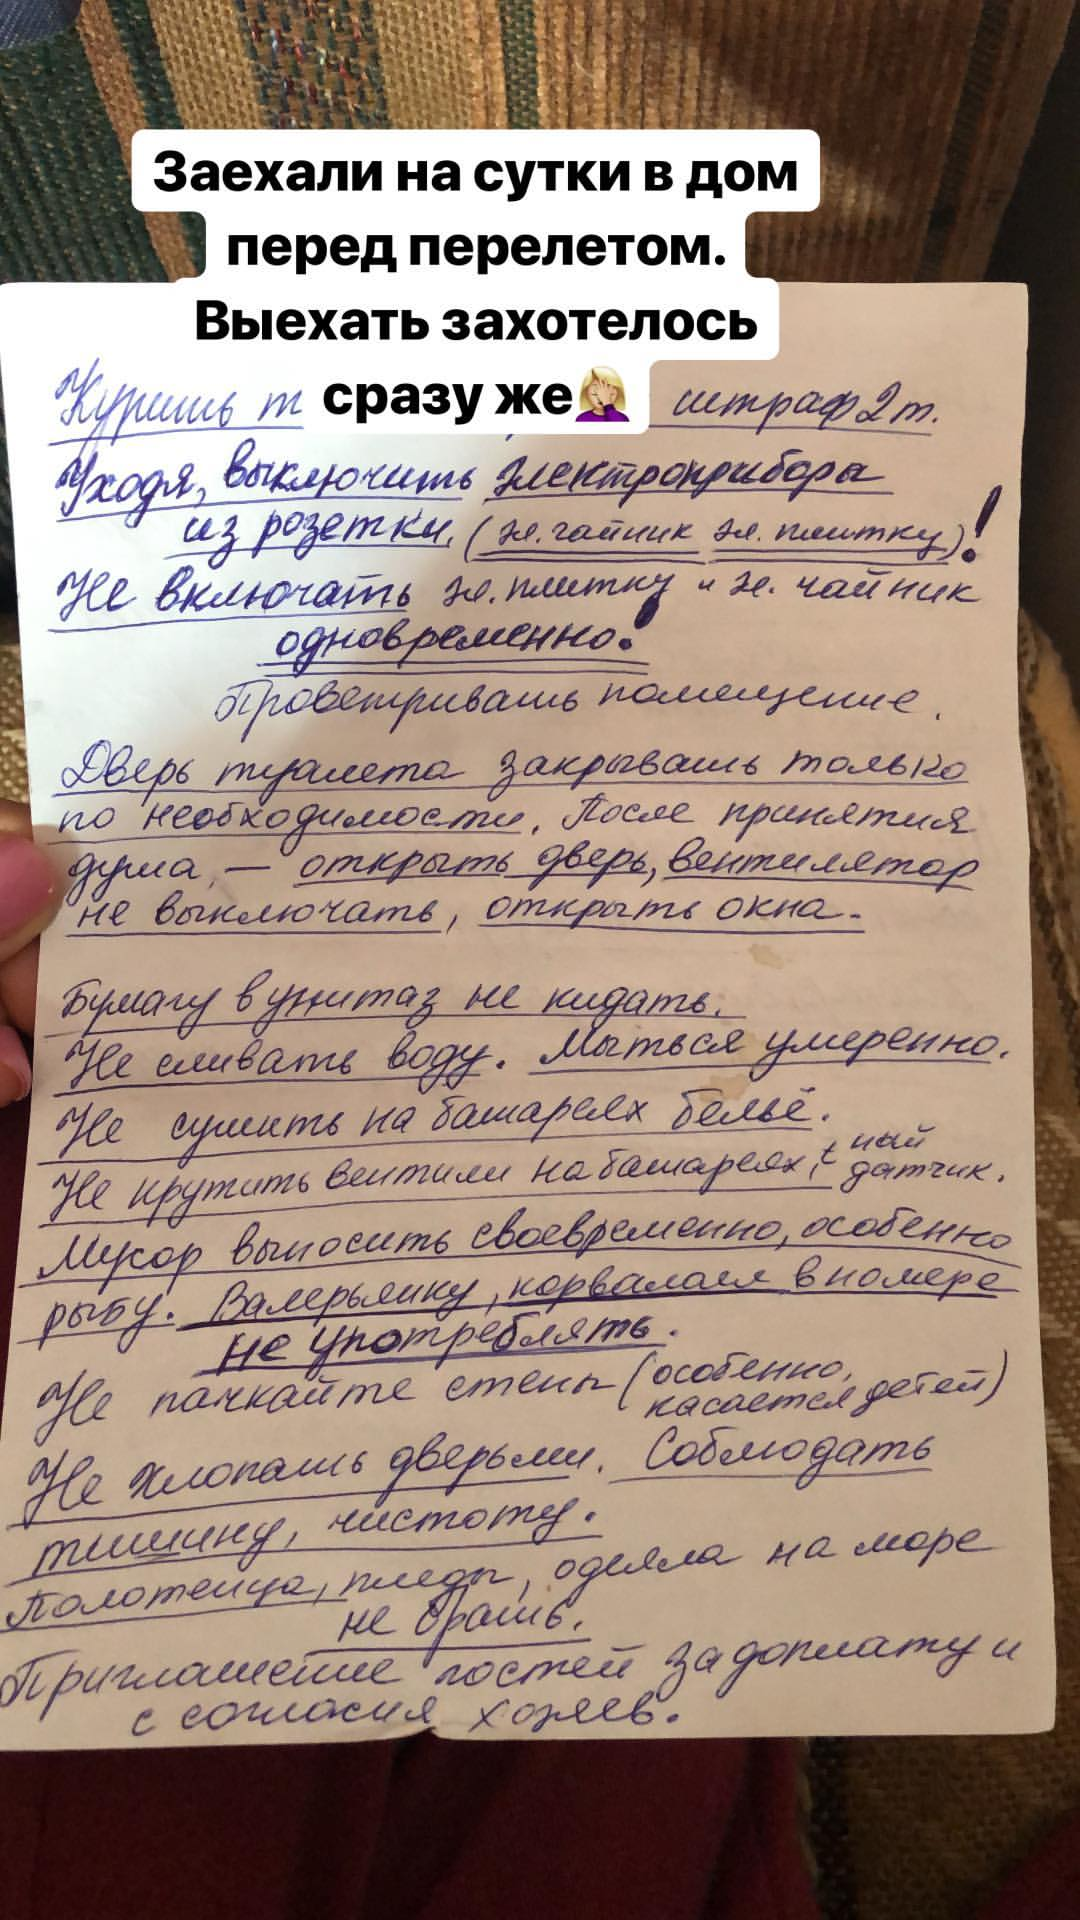 Заехали на сутки в дом
перед перелетом.
Выехать захотелось
сразу же🤦🏼‍♀️
штраф 2т.
Уходя, выключить электроприборы
из розетки. (эл. чайник эл. плитку)!
Не включать эл. плитку и эл. чайник
одновременно!
Проветривать помещение.
Дверь туалета закрывать только
по необходимости. После принятия
душа, — открыть дверь, вентилятор
не выключать, открыть окна.
Бумагу в унитаз не кидать.
Не сливать воду. Мыться умеренно.
Не сушить на батареях бельё.
Не крутить вентили на батареях, t ный датчик.
Мусор выносить своевременно, особенно
рыбу. Валерьянку, корвалол в номере
не употреблять.
Не пачкайте стены (особенно,
касается детей)
Не хлопать дверьми. Соблюдать
тишину, чистоту.
Полотенца, пледы, одеяла на море
не брать.
Приглашение гостей за доплату и
с согласия хозяев.